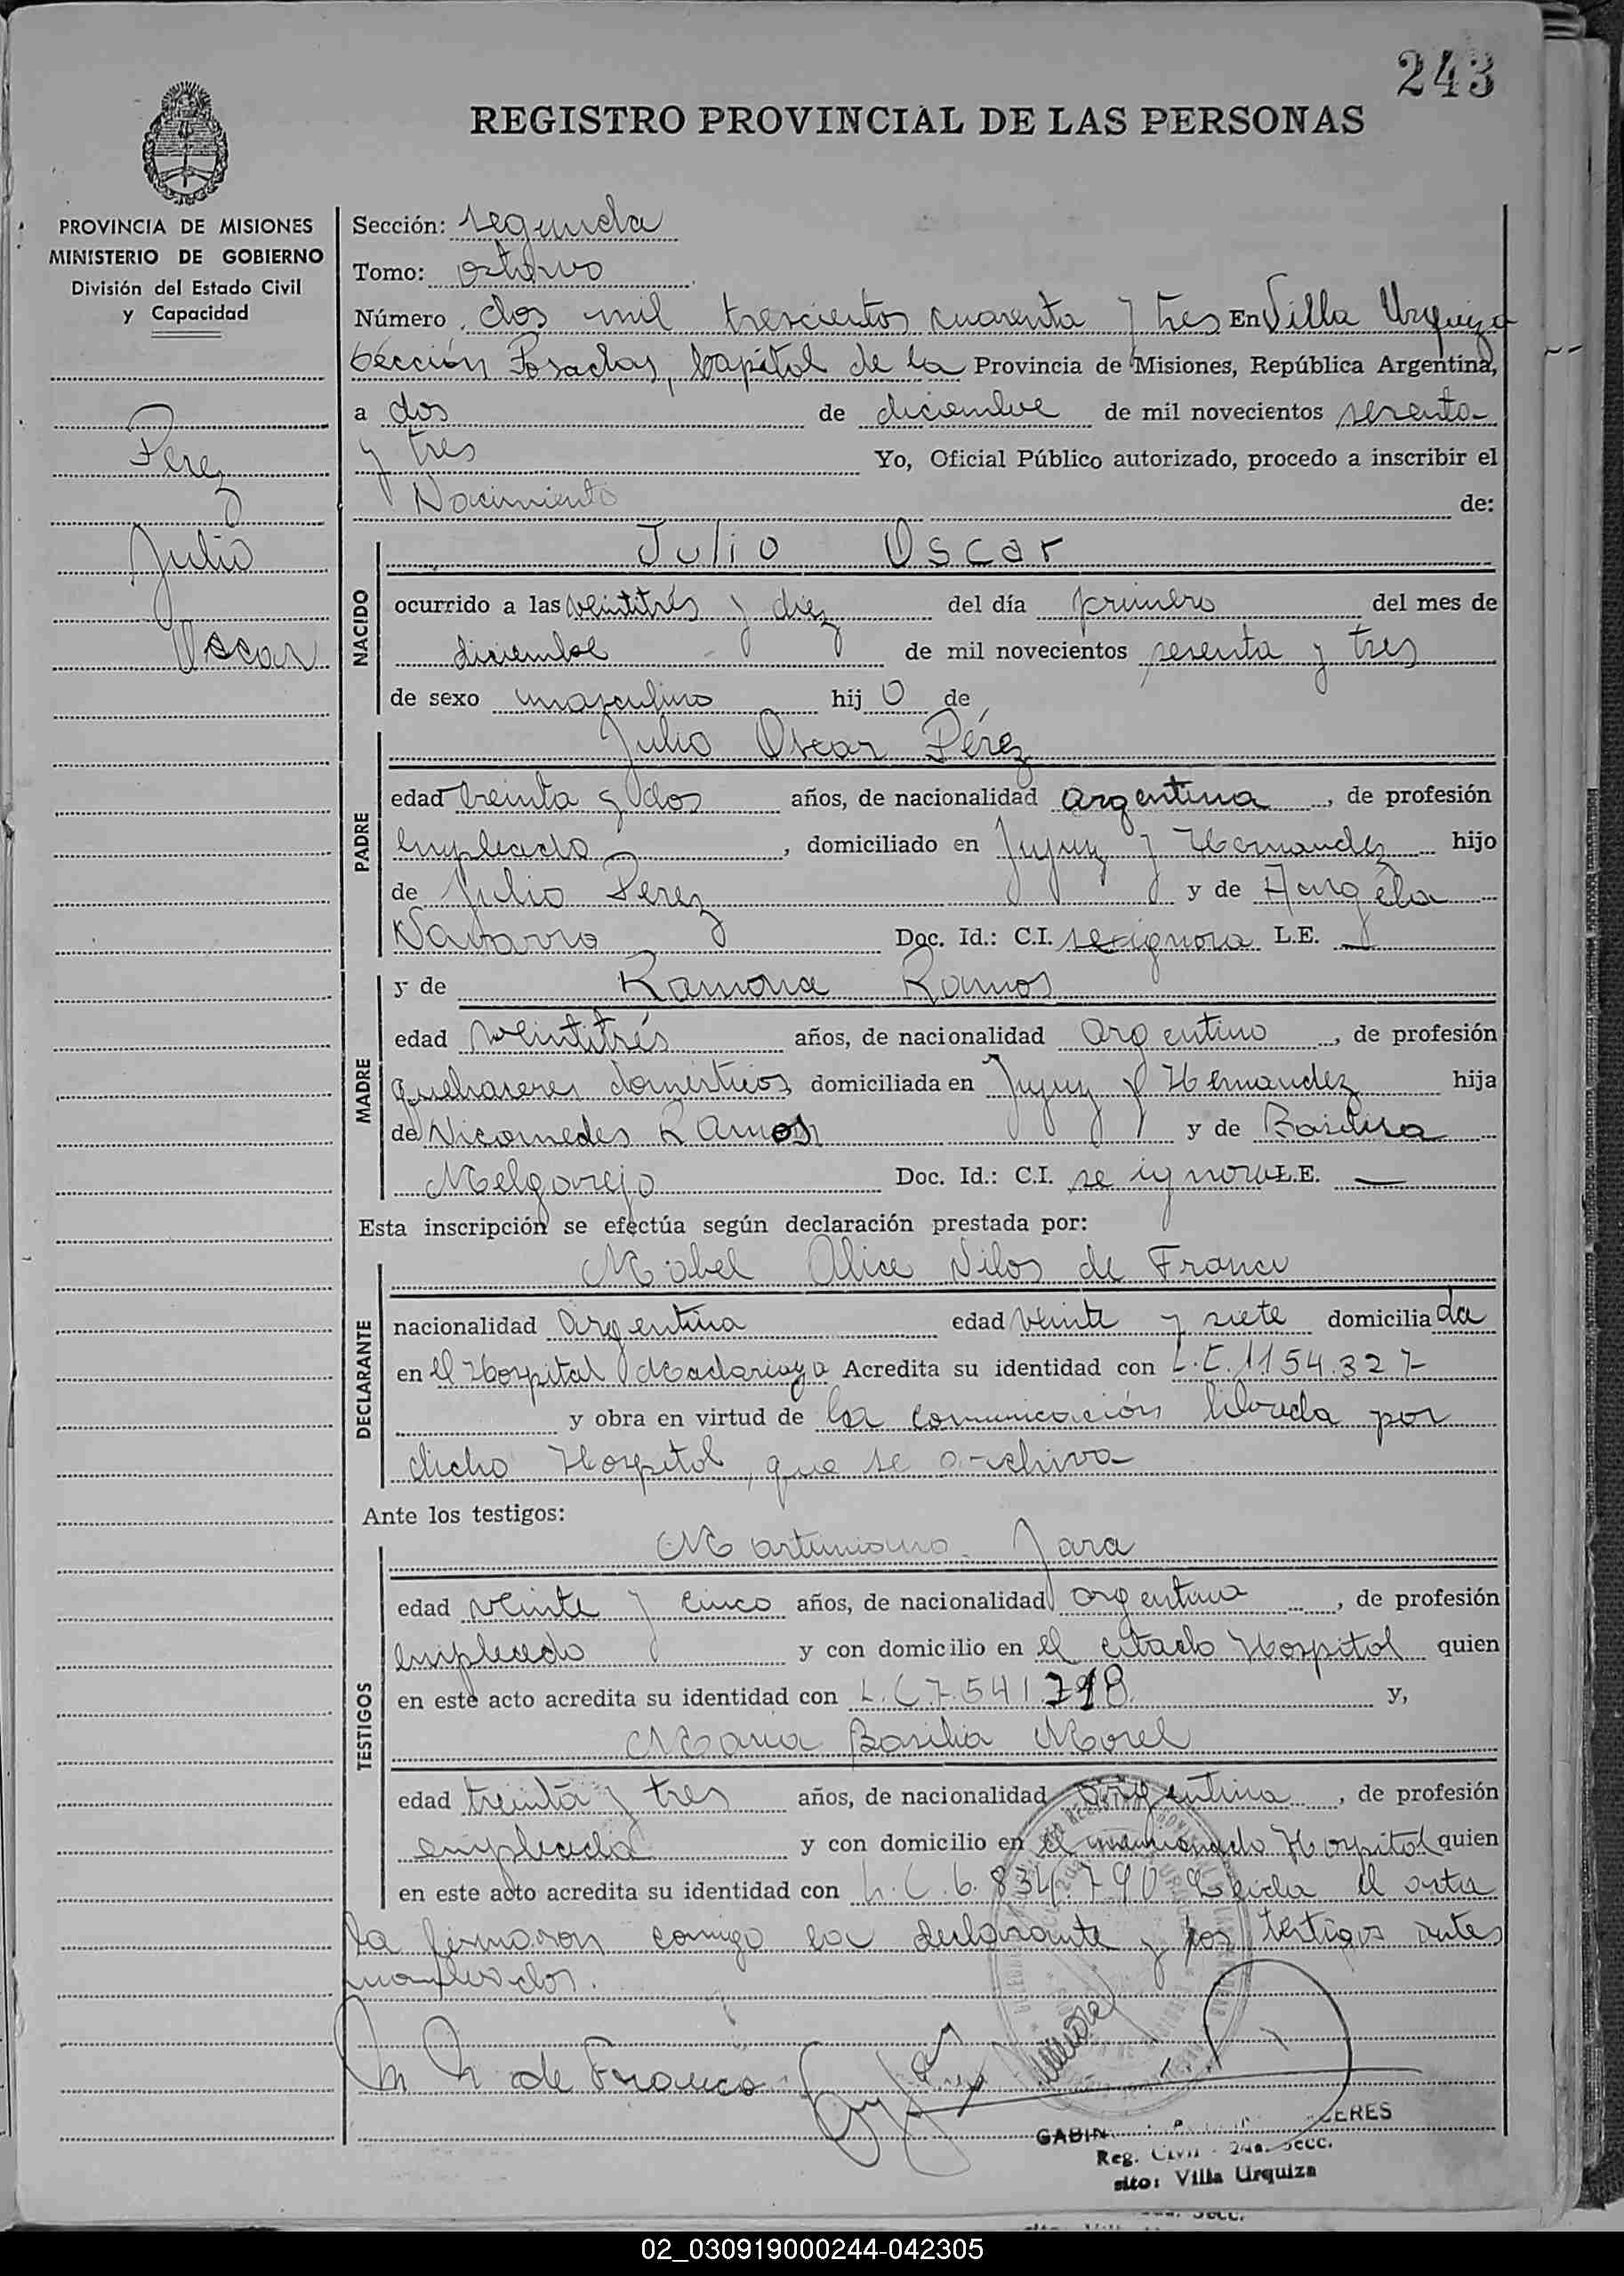 243
REGISTRO PROVINCIAL DE LAS PERSONAS
PROVINCIA DE MISIONES
MINISTERIO DE GOBIERNO
División del Estado Civil
y Capacidad
Perez
Julio
Oscar
Sección: segunda
Tomo: octavo
Número dos mil trescientos cuarenta y tres En Villa Urquiza
Sección Posadas, Capital de la Provincia de Misiones, República Argentina,
a dos de diciembre de mil novecientos sesenta
y tres Yo, Oficial Público autorizado, procedo a inscribir el
Nacimiento de:
NACIDO
Julio Oscar
ocurrido a las veintitrés y diez del día primero del mes de
diciembre de mil novecientos sesenta y tres
de sexo masculino hijo de
PADRE
Julio Oscar Pérez
edad treinta y dos años, de nacionalidad argentina, de profesión
empleado, domiciliado en Jujuy y Hernandez hijo
de Julio Perez y de Angela
Navarro Doc. Id.: C.I. se ignora L.E. —
MADRE
y de Ramona Ramos
edad veintitrés años, de nacionalidad argentina, de profesión
quehaceres domésticos, domiciliada en Jujuy y Hernandez hija
de Nicomedes Ramos y de Basilisa
Melgarejo Doc. Id.: C.I. se ignora L.E. —
Esta inscripción se efectúa según declaración prestada por:
DECLARANTE
Mabel Alice de Franco
nacionalidad argentina edad veinte y siete domiciliada
en el Hospital Madariaga Acredita su identidad con L.C. 1.154.327
y obra en virtud de la comunicación librada por
dicho Hospital, que se archiva
Ante los testigos:
TESTIGOS
Martiniano Jara
edad veinte y cinco años, de nacionalidad argentina, de profesión
empleado y con domicilio en el citado Hospital quien
en este acto acredita su identidad con 7.541.798 y,
Maria Basilia Morel
edad treinta y tres años, de nacionalidad argentina, de profesión
empleada y con domicilio en el mencionado Hospital quien
en este acto acredita su identidad con L.C. 6.834.790 Leida el acta
la firmaron conmigo la declarante y los testigos antes
nombrados.
de Franco
GABIN CERES
Reg. Civil - 2da. Secc.
sito: Villa Urquiza
02_030919000244-042305